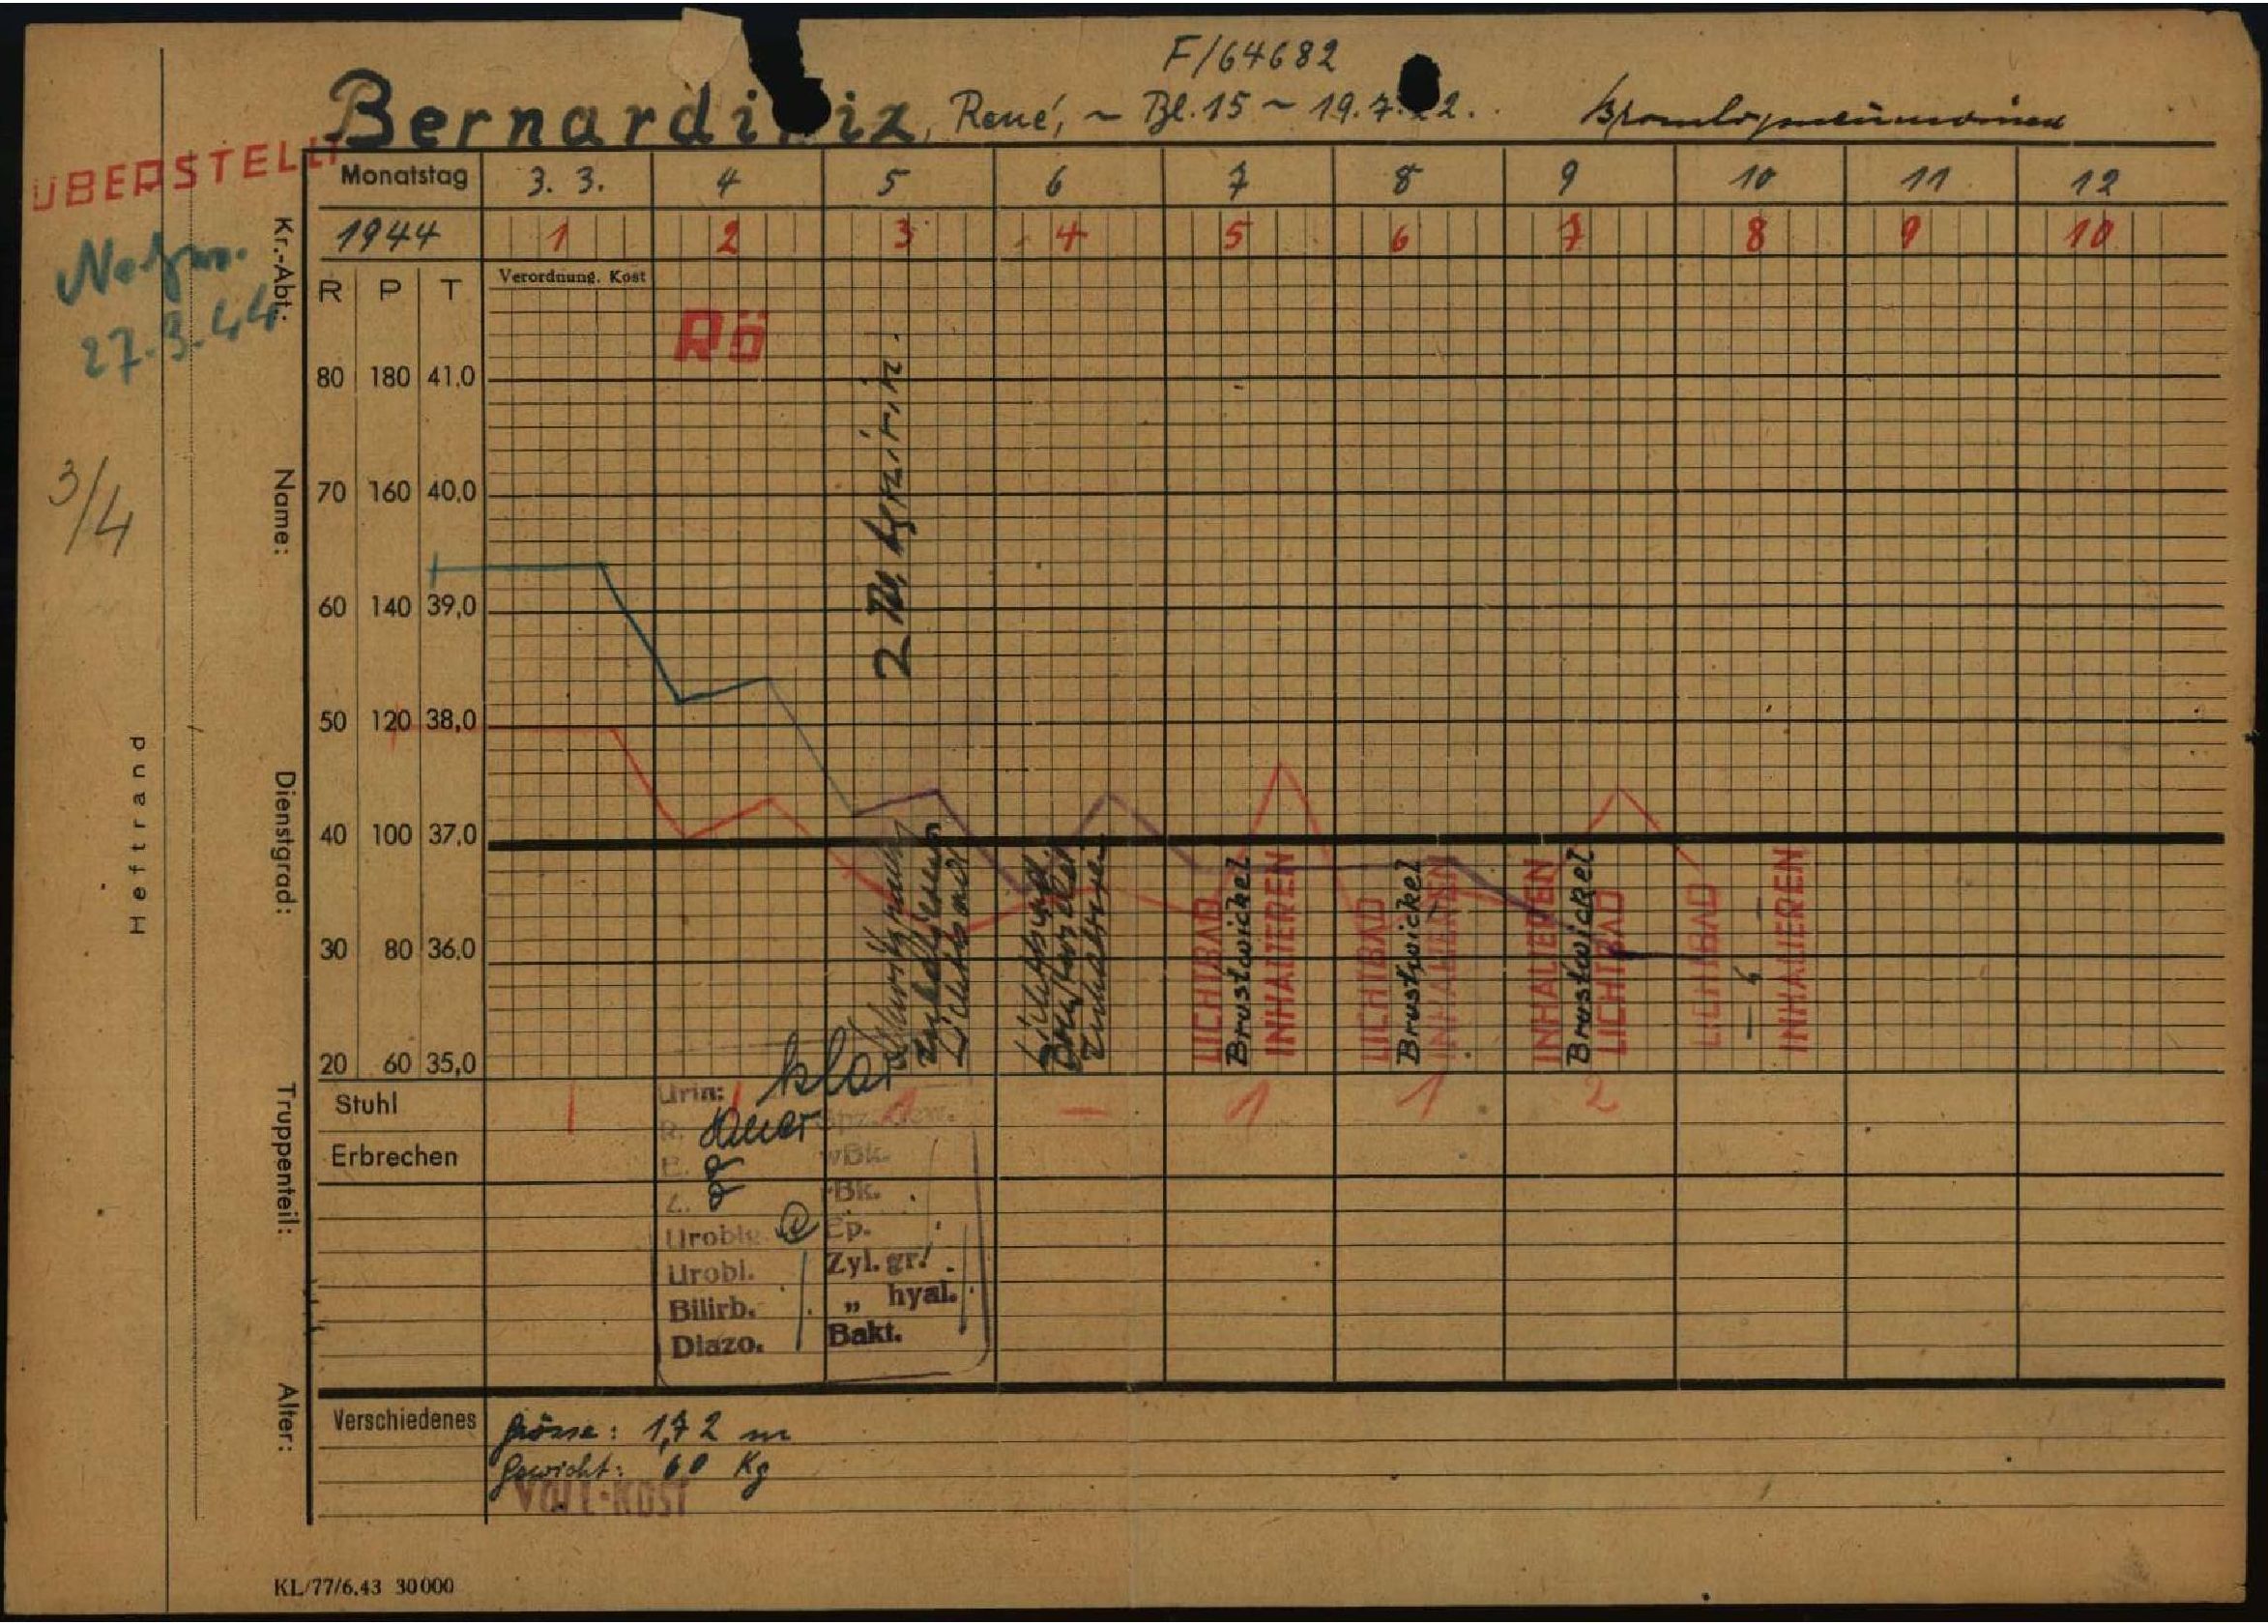 F/64682
René, ~ Bl. 15 ~ 19.7.
ÜBERSTELLT
27.3.44
3/4
Heftrand
Kr.-Abt.:
Name:
Dienstgrad:
Truppenteil:
Alter:
Monatstag 3. 3. 4 5 6 7 8 9 10 11 12
1944 1 2 3 4 5 6 7 8 9 10
R P T Verordnung. Kost
Rö
80 180 41,0
70 160 40,0
60 140 39,0
50 120 38,0
40 100 37,0
30 80 36,0
20 60 35,0
LICHTBAD
Brustwickel
INHALIEREN
LICHTBAD
Brustwickel
INHALIEREN
INHALIEREN
Brustwickel
LICHTBAD
LICHTBAD
INHALIEREN
Stuhl 1 1 1 – 1 1 2
Erbrechen
Urin: klar
R. sauer
E.
Z.
Urobl.
Bilirb.
Diazo.
Bk.
Ep.
Zyl. gr.
„ hyal.
Bakt.
Verschiedenes
Grösse: 1,72 m
Gewicht: 60 Kg
VOLL-KOST
KL/77/6.43 30000